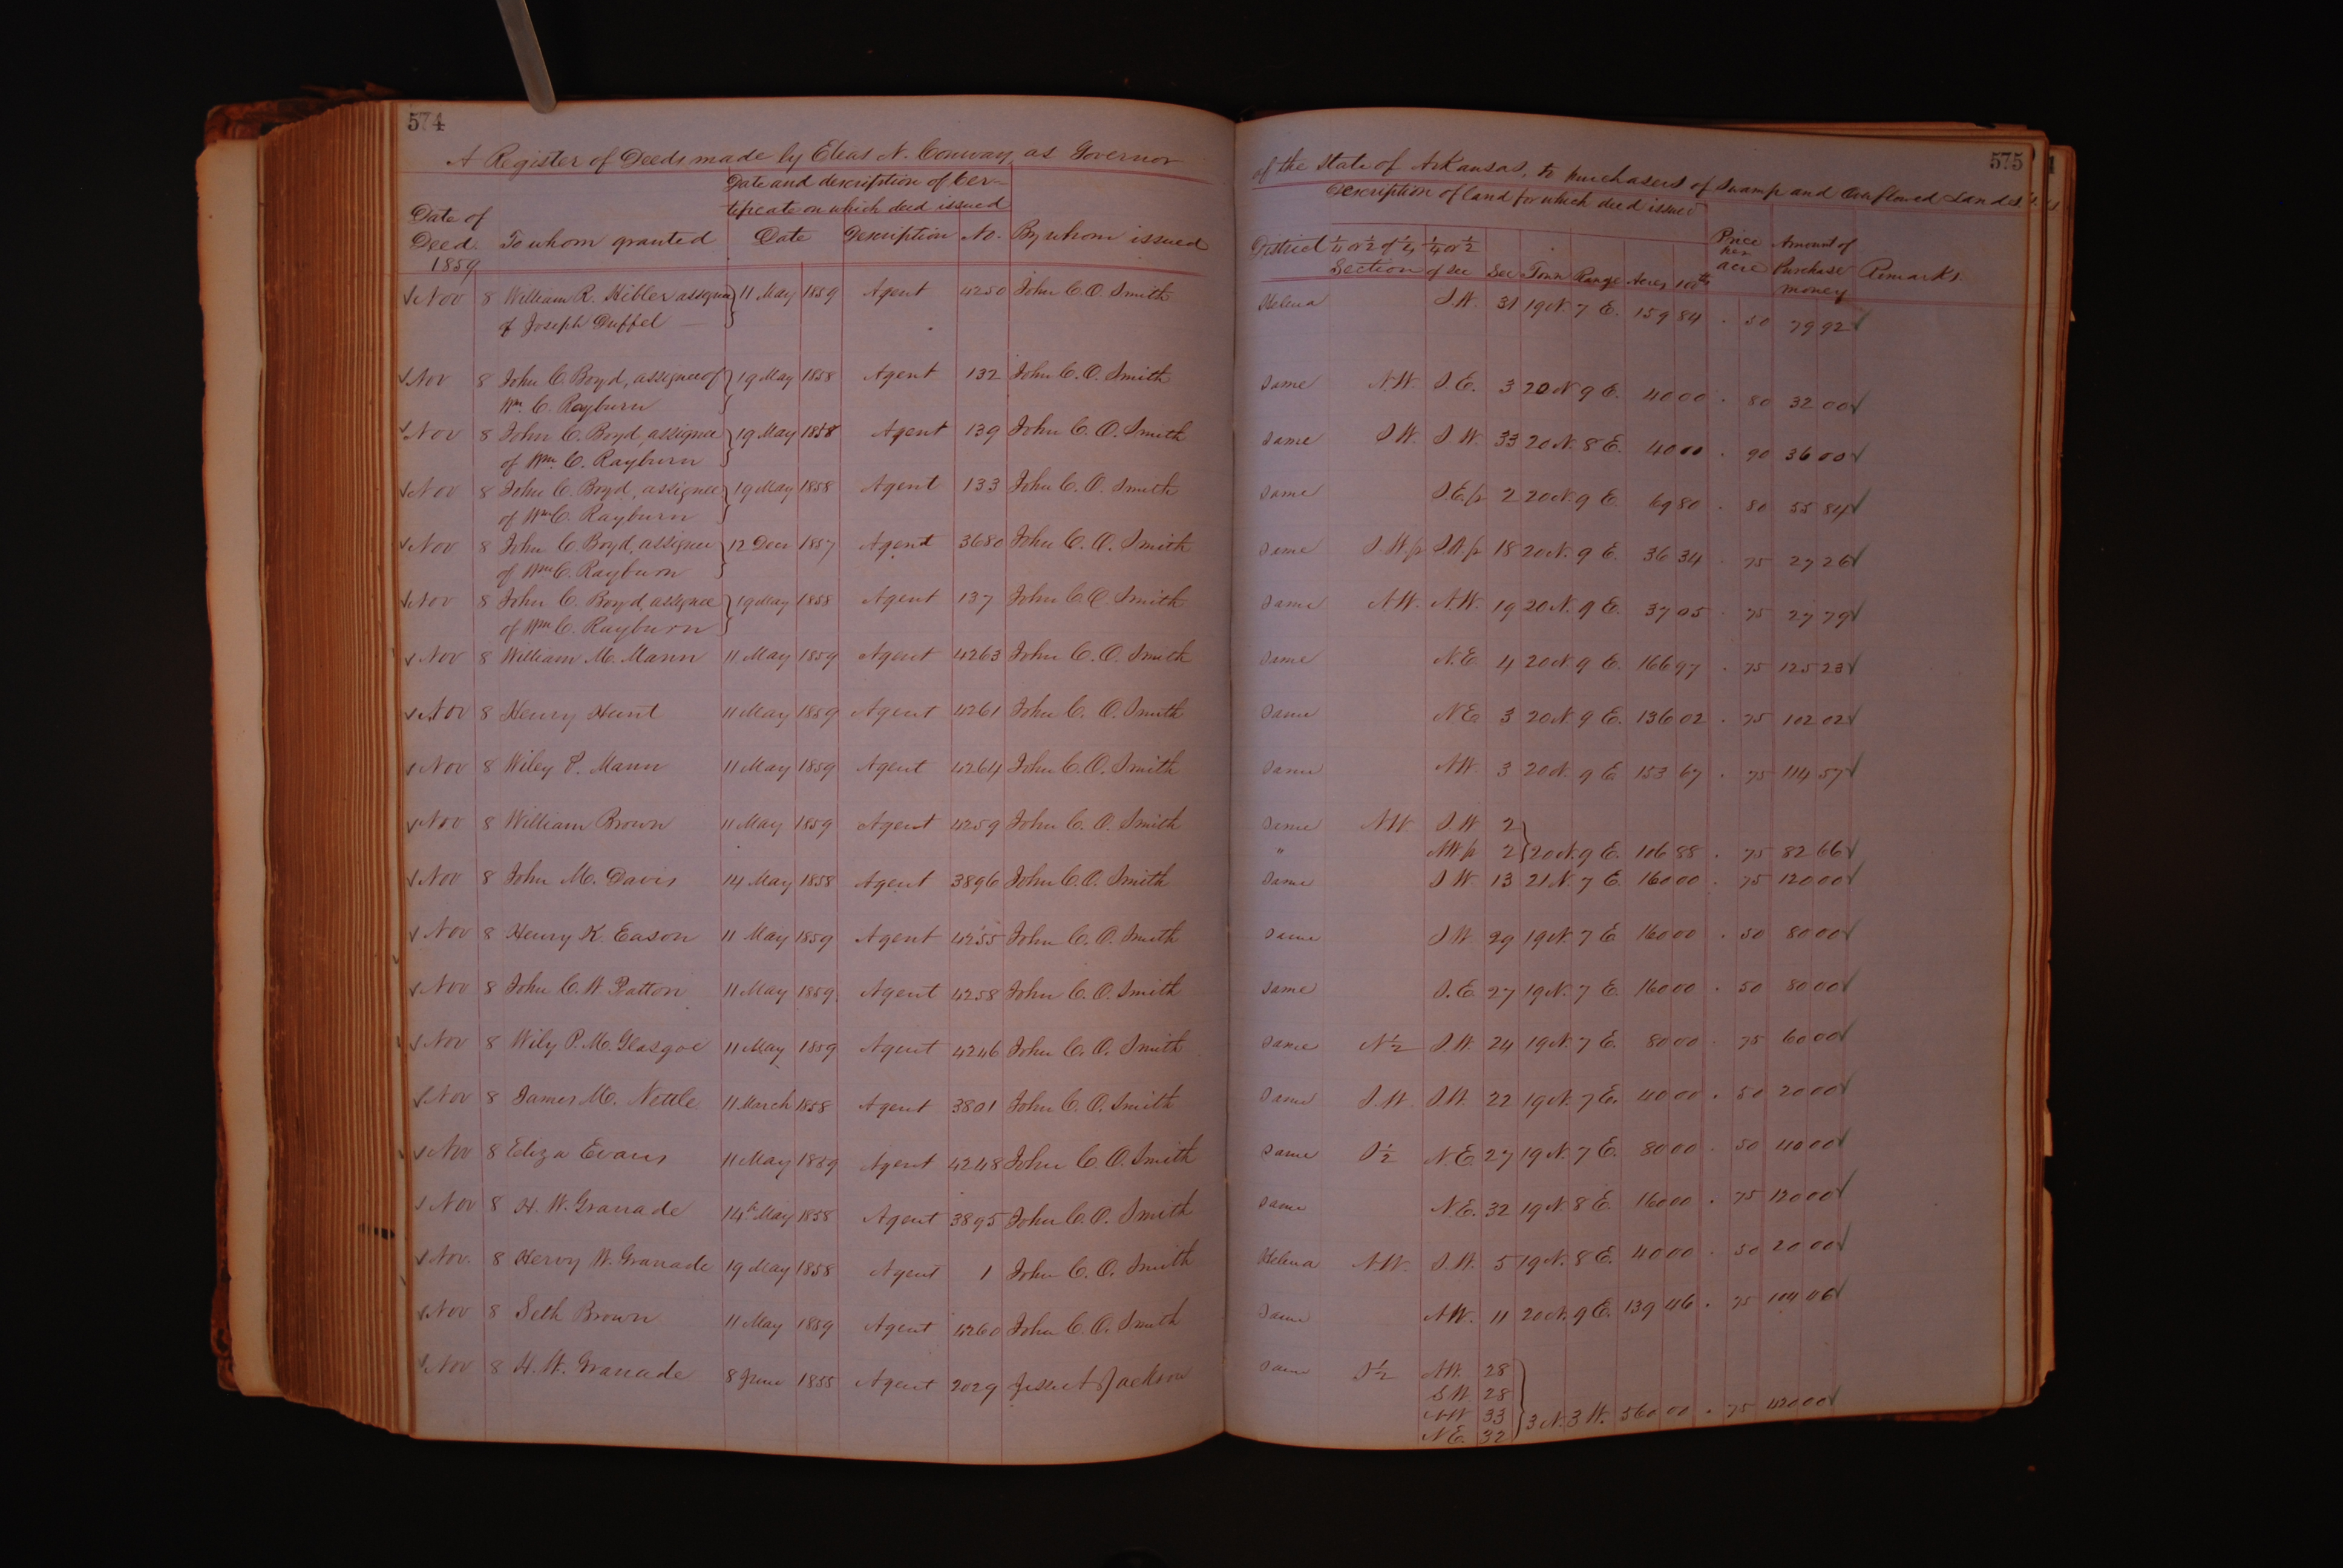 574
A Register of Deeds made by Elias N. Conway, as Governor
Date and description of Cer-
tificate on which deed issued
Date of
Deed To whom granted Date Description No. By whom issued
1859
Nov 8 William R. Kibler assignee } 11 May 1859 Agent 4250 John C. O. Smith
of Joseph Duffel
Nov 8 John C. Boyd, assignee of } 19 May 1858 Agent 132 John C. O. Smith
Wm. C. Rayburn
Nov 8 John C. Boyd, assignee } 19 May 1858 Agent 139 John C. O. Smith
of Wm. C. Rayburn
Nov 8 John C. Boyd, assignee } 19 May 1858 Agent 133 John C. O. Smith
of Wm C. Rayburn
Nov 8 John C. Boyd, assignee } 12 Decr 1857 Agent 3680 John C. O. Smith
of Wm C. Rayburn
Nov 8 John C. Boyd, assignee } 19 May 1858 Agent 137 John C. O. Smith
of Wm C. Rayburn
Nov 8 William M. Mann 11 May 1859 Agent 4263 John C. O. Smith
Nov 8 Henry Hunt 11 May 1859 Agent 4261 John C. O. Smith
Nov 8 Wiley P. Mann 11 May 1859 Agent 4264 John C. O. Smith
Nov 8 William Brown 11 May 1859 Agent 4259 John C. O. Smith
Nov 8 John M. Davis 14 May 1858 Agent 3896 John C. O. Smith
Nov 8 Henry K. Eason 11 May 1859 Agent 4255 John C. O. Smith
Nov 8 John C. W. Patton 11 May 1859 Agent 4258 John C. O. Smith
Nov 8 Wily P. M. Glasgoe 11 May 1859 Agent 4246 John C. O. Smith
Nov 8 James M. Nettle 11 March 1858 Agent 3801 John C. O. Smith
Nov 8 Eliza Evans 11 May 1859 Agent 4248 John C. O. Smith
Nov 8 H. W. Granade 14th May 1858 Agent 3895 John C. O. Smith
Nov. 8 Hervy W. Granade 19 May 1858 Agent 1 John C. O. Smith
Nov 8 Seth Brown 11 May 1859 Agent 4260 John C. O. Smith
Nov 8 H. W. Granade 8 June 1855 Agent 2029 Jesse A Jackson
575
of the state of Arkansas, to purchasers of Swamp and Overflowed Lands
Description of land for which deed issued
District 1/4 or 1/2 of 1/4 1/4 or 1/2 Price Amount of
Section of sec Sec Town Range Acres 100ths per acre Purchase money Remarks.
Helena S.W. 31 19 N. 7 E. 159 84 . 50 79 92
Same N.W. S.E. 3 20 N 9 E. 40 00 . 80 32 00
Same S.W. S.W. 33 20 N. 8 E. 40 00 . 90 36 00
Same S.E. p 2 20 N. 9 E. 69 80 . 80 55 84
Same S.W. p S.W. p 18 20 N. 9 E. 36 34 . 75 27 26
Same N.W. N.W. 19 20 N. 9 E. 37 05 . 75 27 79
Same N.E. 4 20 N. 9 E. 166 97 . 75 125 23
Same N E 3 20 N 9 E. 136 02 . 75 102 02
Same N W. 3 20 N. 9 E. 153 67 . 75 114 57
Same N W. S W 2 }
" N W p 2 } 20 N. 9 E. 106 88 . 75 82 66
Same S W. 13 21 N. 7 E. 160 00 . 75 120 00
Same S W. 29 19 N. 7 E 160 00 . 50 80 00
Same S.E. 27 19 N. 7 E. 160 00 . 50 80 00
Same N 1/2 S.W. 24 19 N. 7 E. 80 00 . 75 60 00
Same S.W. S W. 22 19 N. 7 E. 40 00 . 50 20 00
Same S 1/2 N.E. 27 19 N. 7 E. 80 00 . 50 40 00
Same N.E. 32 19 N. 8 E. 160 00 . 75 120 00
Helena N.W. S.W. 5 19 N. 8 E. 40 00 . 50 20 00
Same N W. 11 20 N. 9 E. 139 46 . 75 104 06
Same S 1/2 N W. 28
S W 28
N W 33 } 3 N. 3 W. 560 00 . 75 420 00
N E. 32